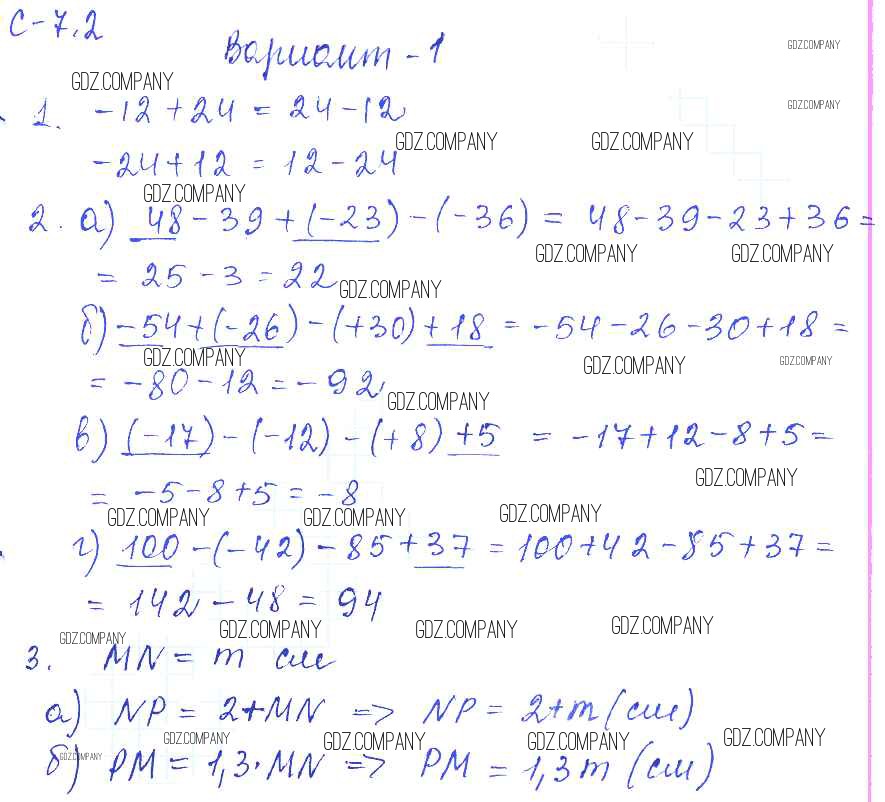 С-7.2
Вариант-1
GDZ.COMPANY
GDZ.COMPANY
1. -12+24 = 24-12
GDZ.COMPANY
GDZ.COMPANY
GDZ.COMPANY
-24+12 = 12-24
GDZ.COMPANY
2. а) 48-39+(-23)-(-36) = 48-39-23+36=
GDZ.COMPANY
GDZ.COMPANY
= 25-3=22
GDZ.COMPANY
б) -54+(-26)-(+30)+18 = -54-26-30+18=
GDZ.COMPANY
GDZ.COMPANY
GDZ.COMPANY
= -80-12=-92
GDZ.COMPANY
в) (-17)-(-12)-(+8)+5 = -17+12-8+5=
GDZ.COMPANY
= -5-8+5=-8
GDZ.COMPANY
GDZ.COMPANY
GDZ.COMPANY
г) 100-(-42)-85+37=100+42-85+37=
= 142-48=94
GDZ.COMPANY
GDZ.COMPANY
GDZ.COMPANY
GDZ.COMPANY
3. MN = m см
а) NP = 2+MN => NP = 2+m (см)
GDZ.COMPANY
GDZ.COMPANY
GDZ.COMPANY
GDZ.COMPANY
GDZ.COMPANY
б) PM = 1,3·MN => PM = 1,3m (см)